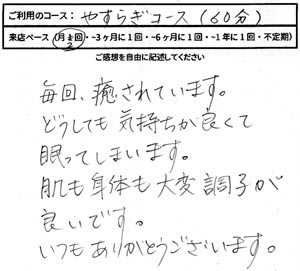 ご利用のコース：やすらぎコース（60分）
来店ペース（月2回・~3ヶ月に1回・~6ヶ月に1回・~1年に1回・不定期）
ご感想を自由に記述してください
毎回、癒されています。
どうしても気持ちが良くて
眠ってしまいます。
肌も身体も大変調子が
良いです。
いつもありがとうございます。